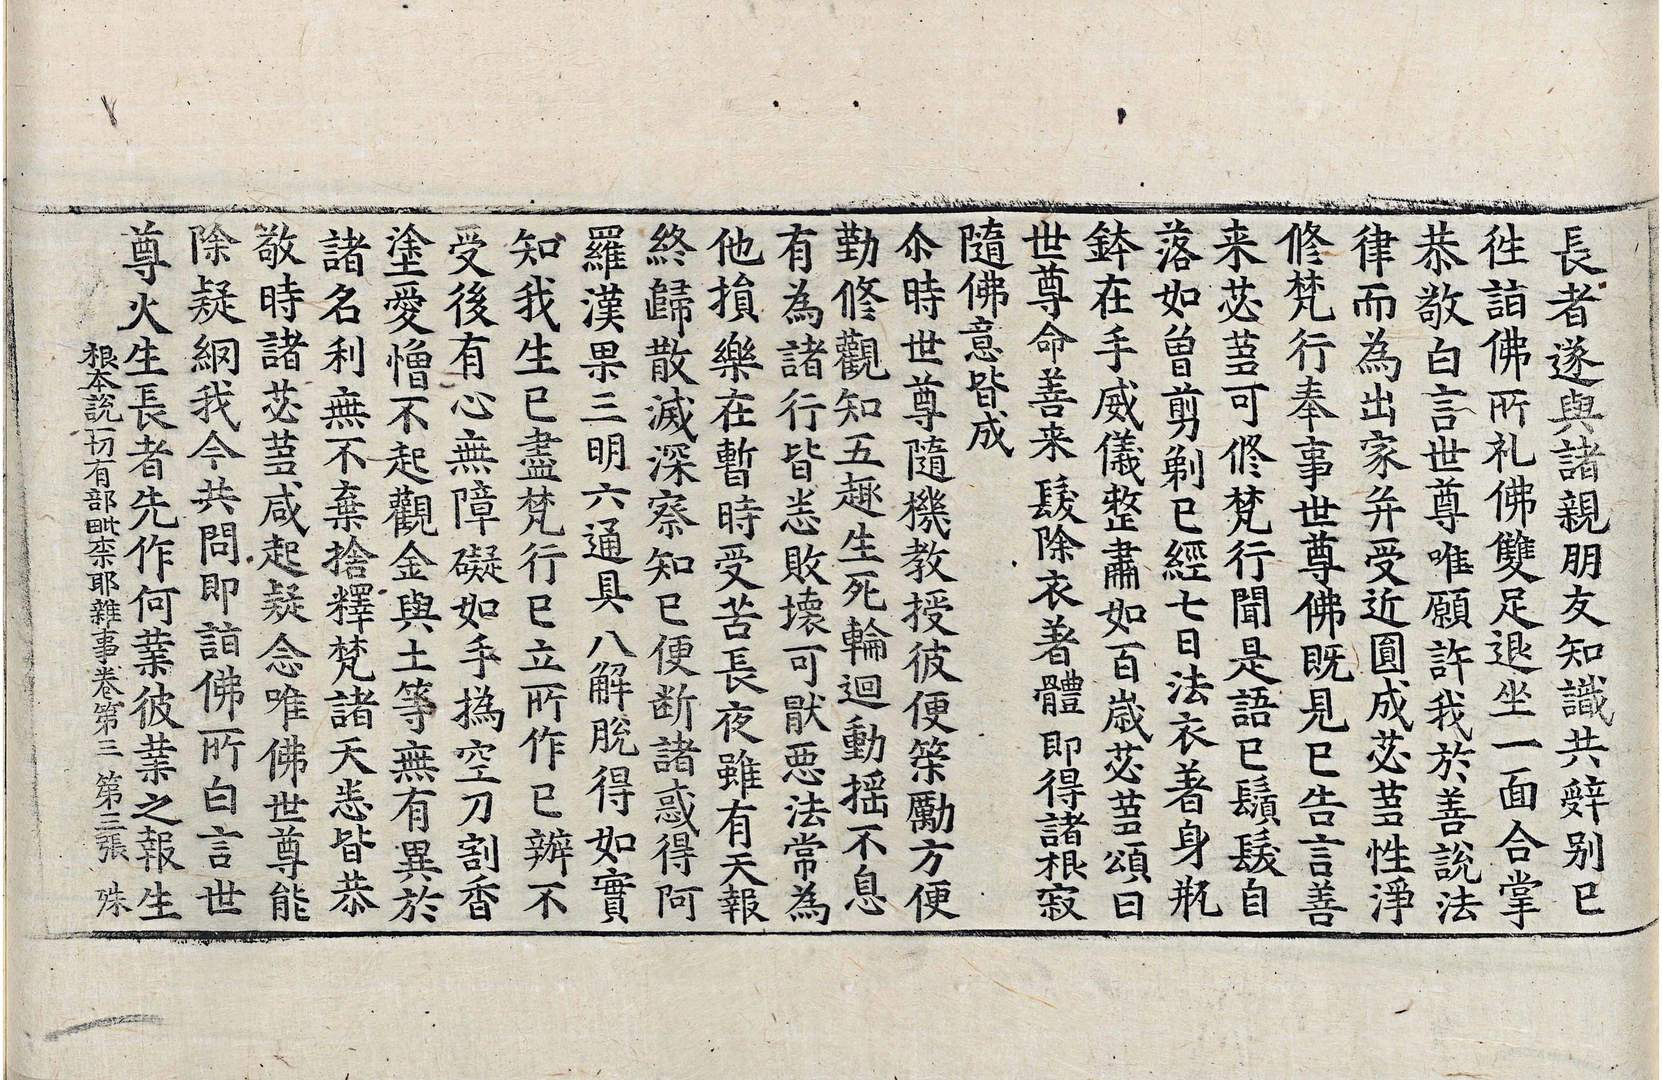 長者遂與諸親朋友知識共辤别已
徃詣佛所礼佛雙足退坐一面合掌
恭敬白言世尊唯願許我於善說法
律而為出家并受近圓成苾蒭性淨
修梵行奉事世尊佛既見已告言善
来苾蒭可修梵行聞是語已鬚髮自
落如曽剪剃已經七日法衣著身瓶
鉢在手威儀整肅如百歲苾蒭頌曰
世尊命善来 髮除衣著體 即得諸根寂
隨佛意皆成
尒時世尊隨機教授彼便策勵方便
勤修觀知五趣生死輪迴動揺不息
有為諸行皆悉敗壞可猒惡法常為
他損樂在暫時受苦長夜雖有天報
終歸散滅深察知已便断諸惑得阿
羅漢果三明六通具八解脫得如實
知我生已盡梵行已立所作已辦不
受後有心無障礙如手撝空刀割香
塗愛憎不起觀金與土等無有異於
諸名利無不棄捨釋梵諸天悉皆恭
敬時諸苾蒭咸起疑念唯佛世尊能
除疑網我今共問即詣佛所白言世
尊火生長者先作何業彼業之報生
根本說一切有部毗柰耶雜事卷第三 第三張 殊